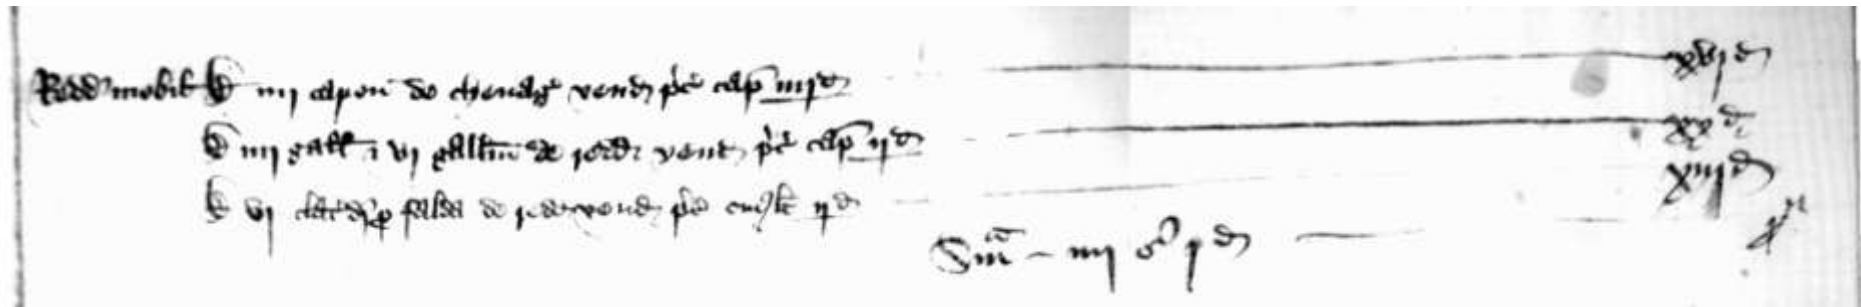 Redd mobil D iiij capon de chevagio vend p'c cap iiijd xvjd
D iiij gall & vj gallin de redd vend p'c cap ijd xxd
D vj clat p falda de redd vend p'c cuj'lt ijd xiijd
Sma iiij s jd